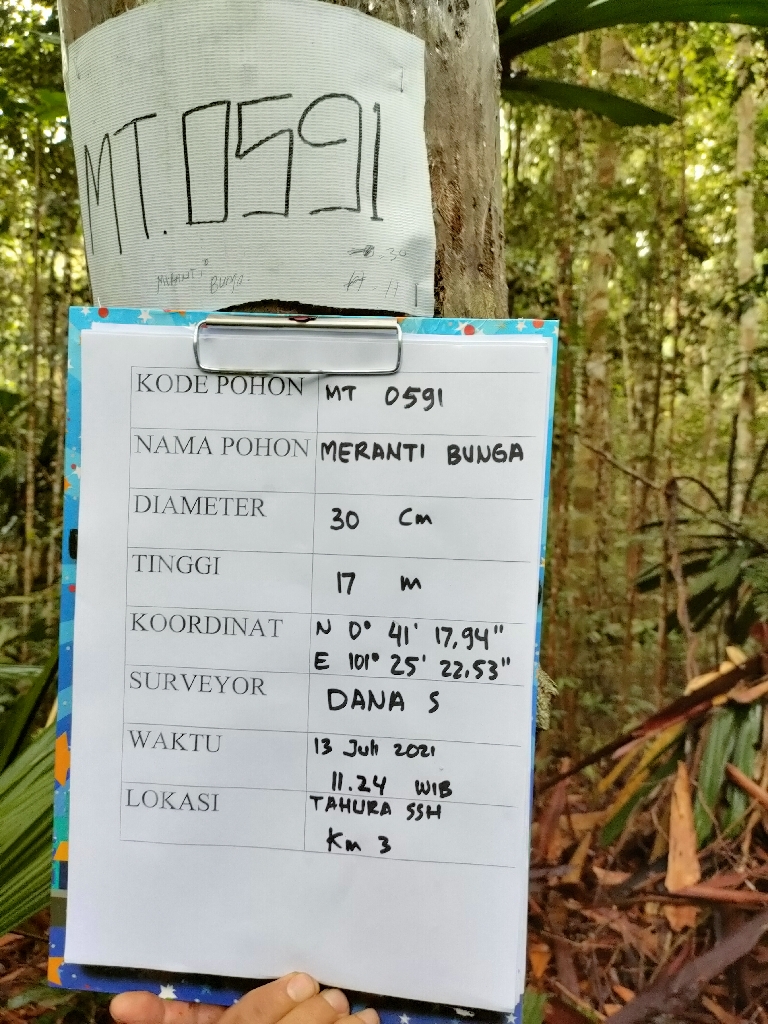 MT. 0591
MERANTI BUNGA. 30
H. 17
KODE POHON MT 0591
NAMA POHON MERANTI BUNGA
DIAMETER 30 Cm
TINGGI 17 m
KOORDINAT N 0° 41' 17,94"
E 101° 25' 22.53"
SURVEYOR DANA S
WAKTU 13 Juli 2021
11.24 WIB
LOKASI TAHURA SSH
Km 3